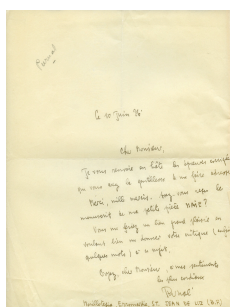 Personnel
Ce 10 Juin 36
Cher Monsieur,
Je vous renvoie en hâte les épreuves corrigées
que vous avez eu la gentillesse de me faire adresser.
Merci, mille mercis. Avez-vous reçu le
manuscrit de ma petite pièce
Vous me feriez un bien grand plaisir en
voulant bien me donner votre critique
quelques mots) à ce sujet.
Croyez, cher Monsieur, à mes sentiments
les plus cordiaux
ST JEAN DE LUZ (B.P.)